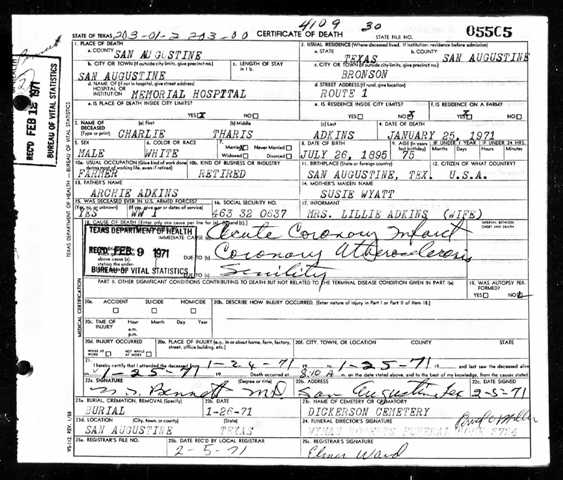 4109 30
STATE OF TEXAS 203-01-2 203-00 CERTIFICATE OF DEATH STATE FILE NO. 05505
1. PLACE OF DEATH 2. USUAL RESIDENCE (Where deceased lived. If institution: residence before admission)
a. COUNTY SAN AUGUSTINE a. STATE TEXAS b. COUNTY SAN AUGUSTINE
b. CITY OR TOWN (If outside city limits, give precinct no.) c. LENGTH OF STAY c. CITY OR TOWN (If outside city limits, give precinct no.)
SAN AUGUSTINE BRONSON
d. NAME OF (If not in hospital, give street address) HOSPITAL OR INSTITUTION MEMORIAL HOSPITAL d. STREET ADDRESS (If rural, give location) ROUTE 1
e. IS PLACE OF DEATH INSIDE CITY LIMITS? e. IS RESIDENCE INSIDE CITY LIMITS? f. IS RESIDENCE ON A FARM?
YES X NO YES NO YES NO
3. NAME OF DECEASED (Type or print) (a) First (b) Middle (c) Last 4. DATE OF DEATH
CHARLIE THARIS ADKINS JANUARY 25, 1971
5. SEX 6. COLOR OR RACE 7. Married Never Married Widowed Divorced 8. DATE OF BIRTH 9. AGE
MALE WHITE JULY 26, 1895 75
10a. USUAL OCCUPATION 10b. KIND OF BUSINESS OR INDUSTRY 11. BIRTHPLACE (State or foreign country) 12. CITIZEN OF WHAT COUNTRY?
FARMER RETIRED SAN AUGUSTINE, TEX. U.S.A.
13. FATHER'S NAME 14. MOTHER'S MAIDEN NAME
ARCHIE ADKINS SUSIE WYATT
15. WAS DECEASED EVER IN U.S. ARMED FORCES? 16. SOCIAL SECURITY NO. 17. INFORMANT
YES WW I 463 32 0637 MRS. LILLIE ADKINS (WIFE)
18. CAUSE OF DEATH
TEXAS DEPARTMENT OF HEALTH IMMEDIATE CAUSE Acute Coronary Infarct
REC'D FEB 9 1971 DUE TO Coronary Atherosclerosis
BUREAU OF VITAL STATISTICS DUE TO Senility
PART II. OTHER SIGNIFICANT CONDITIONS CONTRIBUTING TO DEATH BUT NOT RELATED TO THE TERMINAL DISEASE CONDITION GIVEN IN PART I(a) 19. WAS AUTOPSY PERFORMED?
YES NO
20a. ACCIDENT SUICIDE HOMICIDE 20b. DESCRIBE HOW INJURY OCCURRED. (Enter nature of injury in Part I or Part II of item 18.)
20c. TIME OF INJURY Hour Month Day Year a.m. p.m.
20d. INJURY OCCURRED 20e. PLACE OF INJURY (e.g., in or about home, farm, factory, street, office building, etc.) 20f. CITY, TOWN, OR LOCATION COUNTY STATE
21. I hereby certify that I attended the deceased from 1-24-71 to 1-25-71 and last saw the deceased
1-25-71 Death occurred at 8:10 A m. on the date stated above, and to the best of my knowledge, from the causes stated.
22a. SIGNATURE (Degree or title) 22b. ADDRESS 22c. DATE SIGNED
Bennett MD San Augustine Tex 2-5-71
23a. BURIAL, CREMATION, REMOVAL (Specify) 23b. DATE 23c. NAME OF CEMETERY OR CREMATORY
BURIAL 1-26-71 DICKERSON CEMETERY
23d. LOCATION (City, town, or county) (State) 24. FUNERAL DIRECTOR'S SIGNATURE
SAN AUGUSTINE TEXAS
25a. REGISTRAR'S FILE NO. 25b. DATE REC'D BY LOCAL REGISTRAR 25c. REGISTRAR'S SIGNATURE
2-5-71 Elmer Ward
REC'D FEB 12 1971
BUREAU OF VITAL STATISTICS
TEXAS DEPARTMENT OF HEALTH - BUREAU OF VITAL STATISTICS
MEDICAL CERTIFICATION